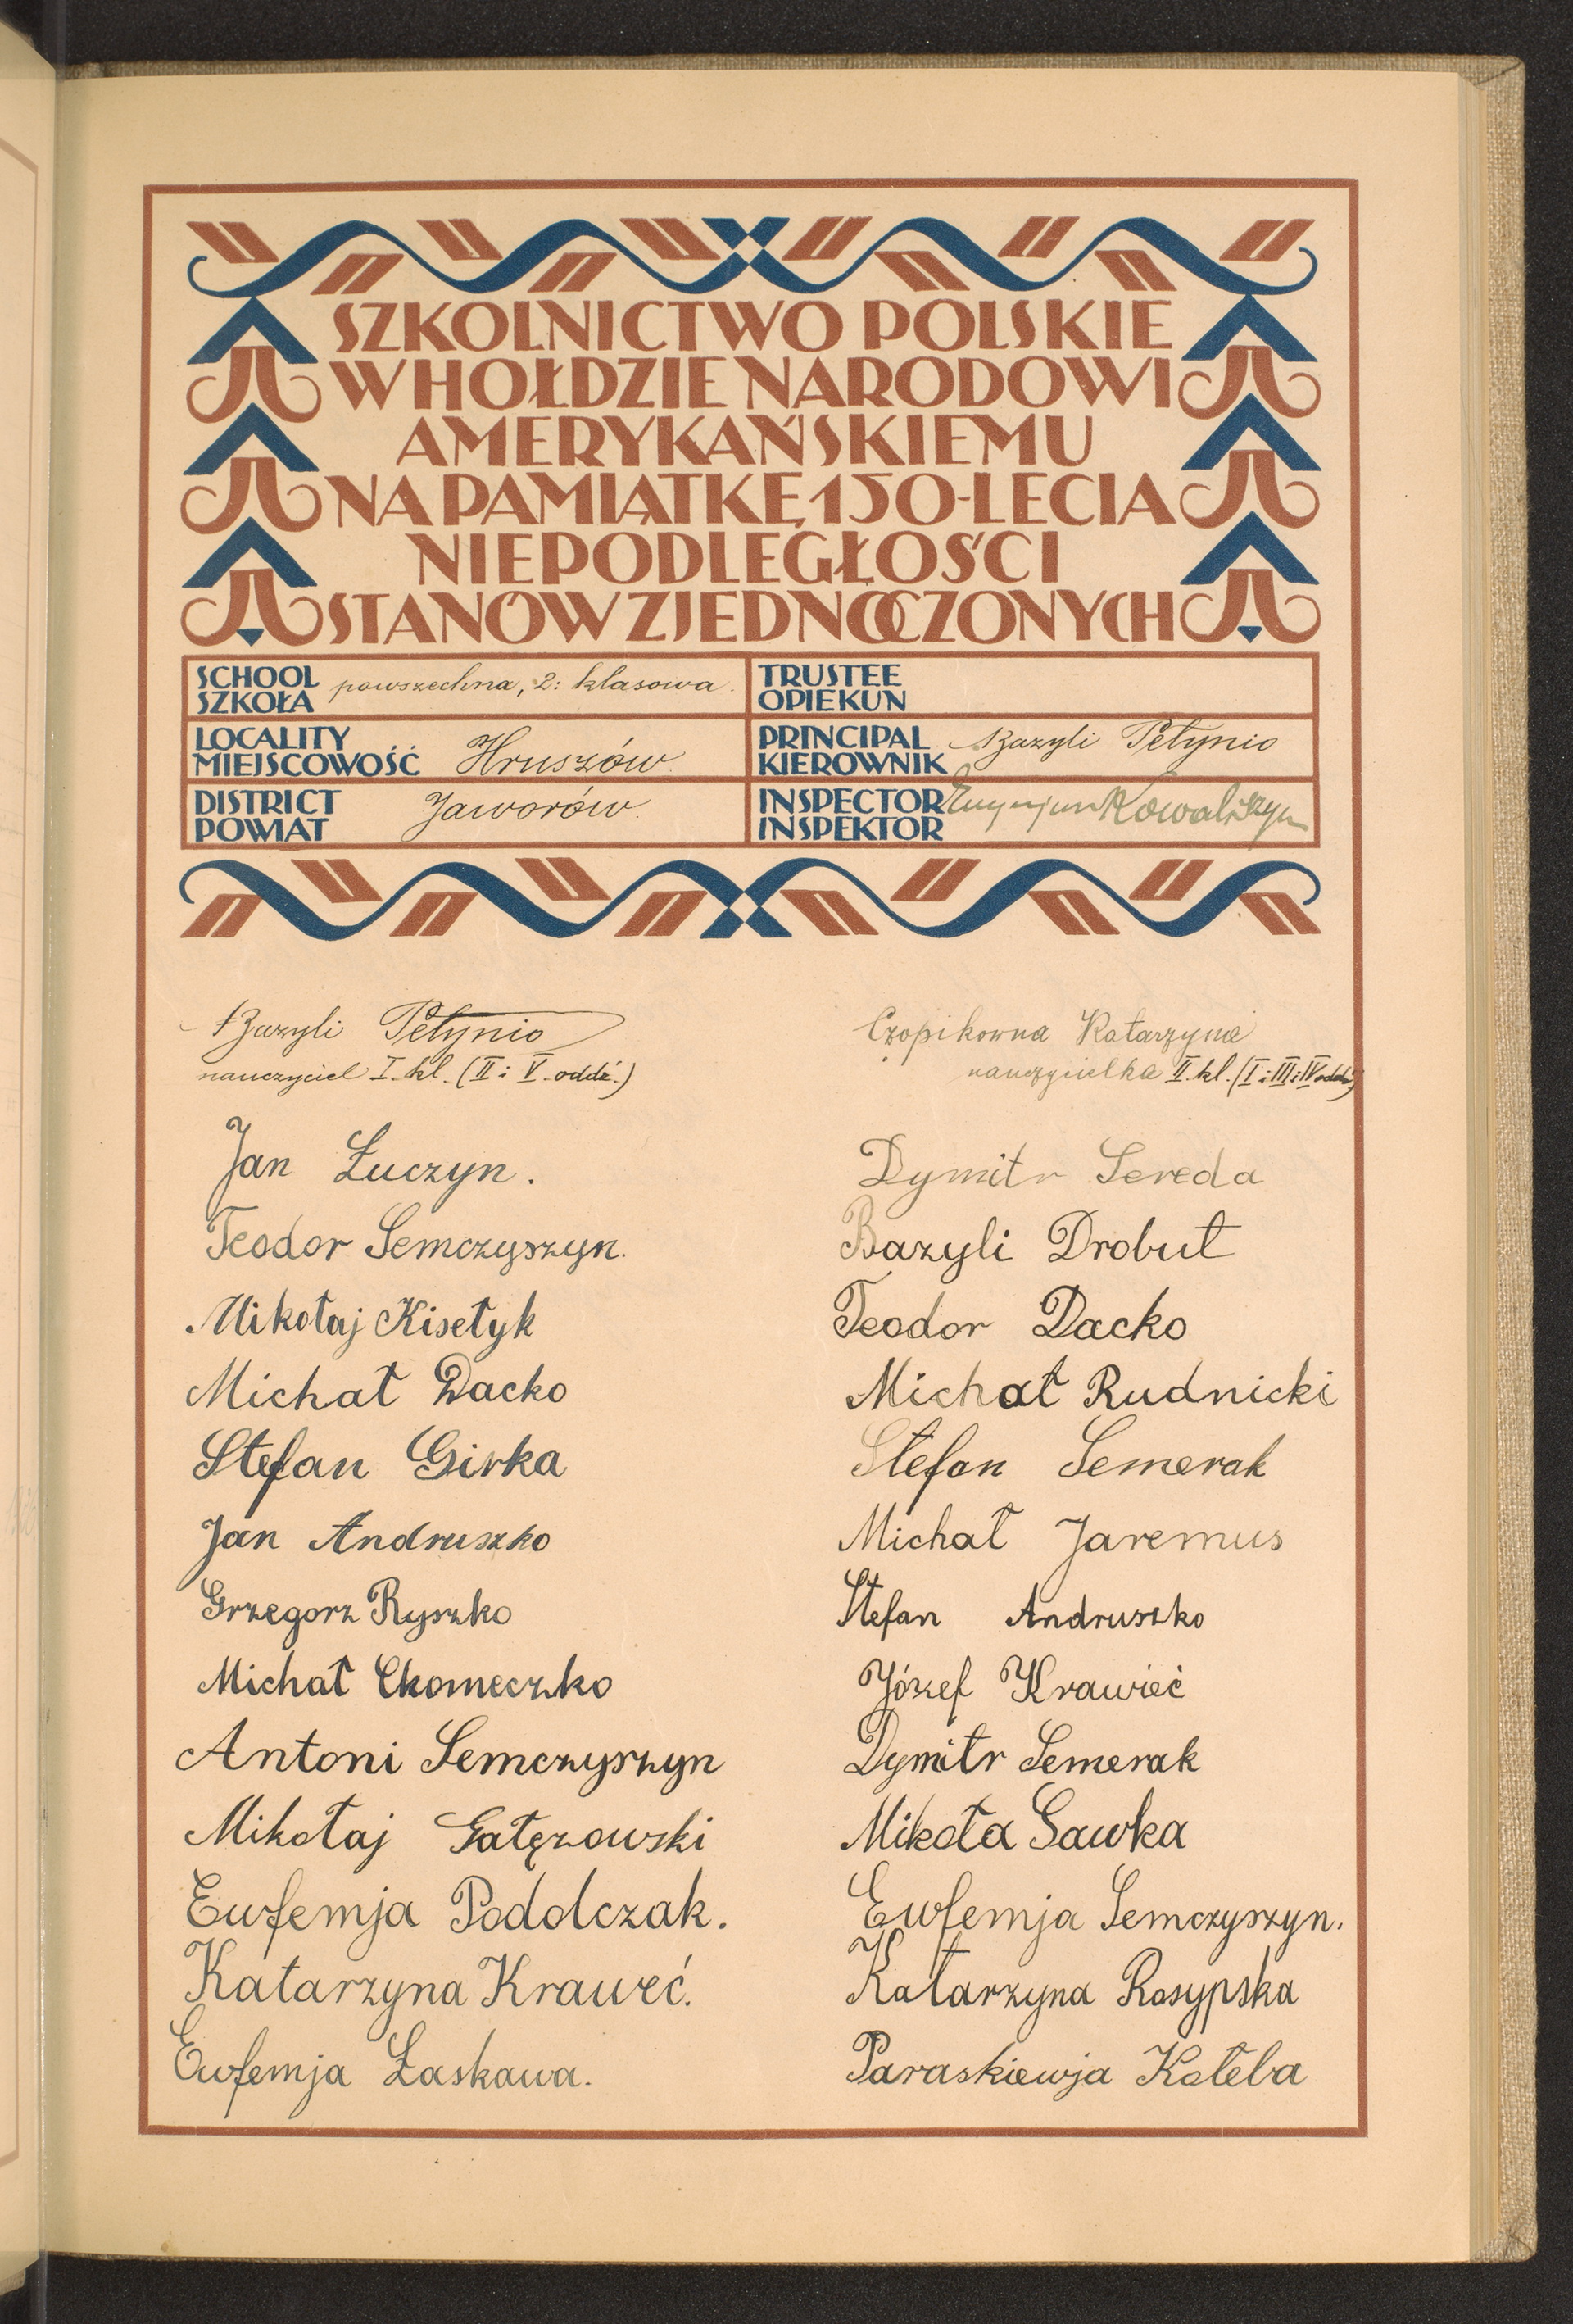 SZKOLNICTWO POLSKIE
W HOŁDZIE NARODOWI
AMERYKAŃSKIEMU
NA PAMIĄTKĘ 150-LECIA
NIEPODLEGŁOŚCI
STANÓW ZJEDNOCZONYCH
SCHOOL
SZKOŁA
powszechna, 2: klasowa.
TRUSTEE
OPIEKUN
LOCALITY
MIEJSCOWOŚĆ
Hruszów
PRINCIPAL
KIEROWNIK
Bazyli Petynio
DISTRICT
POWIAT
Jaworów.
INSPECTOR
INSPEKTOR
Kowaliszyn
Bazyli Petynio
nauczyciel I. kl. (II i V. oddz.)
Jan Łuczyn.
Teodor Semczyszyn.
Mikołaj Kisełyk
Michał Dacko
Stefan Girka
Jan Andruszko
Grzegorz Ryszko
Michał Chomeczko
Antoni Semczyszyn
Mikołaj Gałęzowski
Eufemja Podolczak.
Katarzyna Kraweć.
Ewfemja Łaskawa.
Czopikowna Katarzyna
nauczycielka II. kl. (I i III i IV oddz.)
Dymitr Sereda
Bazyli Drobut
Teodor Dacko
Michał Rudnicki
Stefan Semerak
Michał Jaremus
Stefan Andruszko
Józef Krawieć
Dymitr Semerak
Mikoła Sawka
Ewfemja Semczyszyn.
Katarzyna Rosypska
Paraskiewja Kołeba